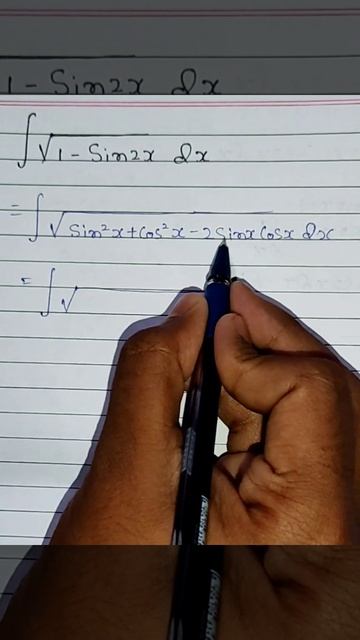 1 - Sin2x dx
∫√1 - Sin2x dx
= ∫√Sin²x + Cos²x - 2 Sinx Cosx dx
= ∫√